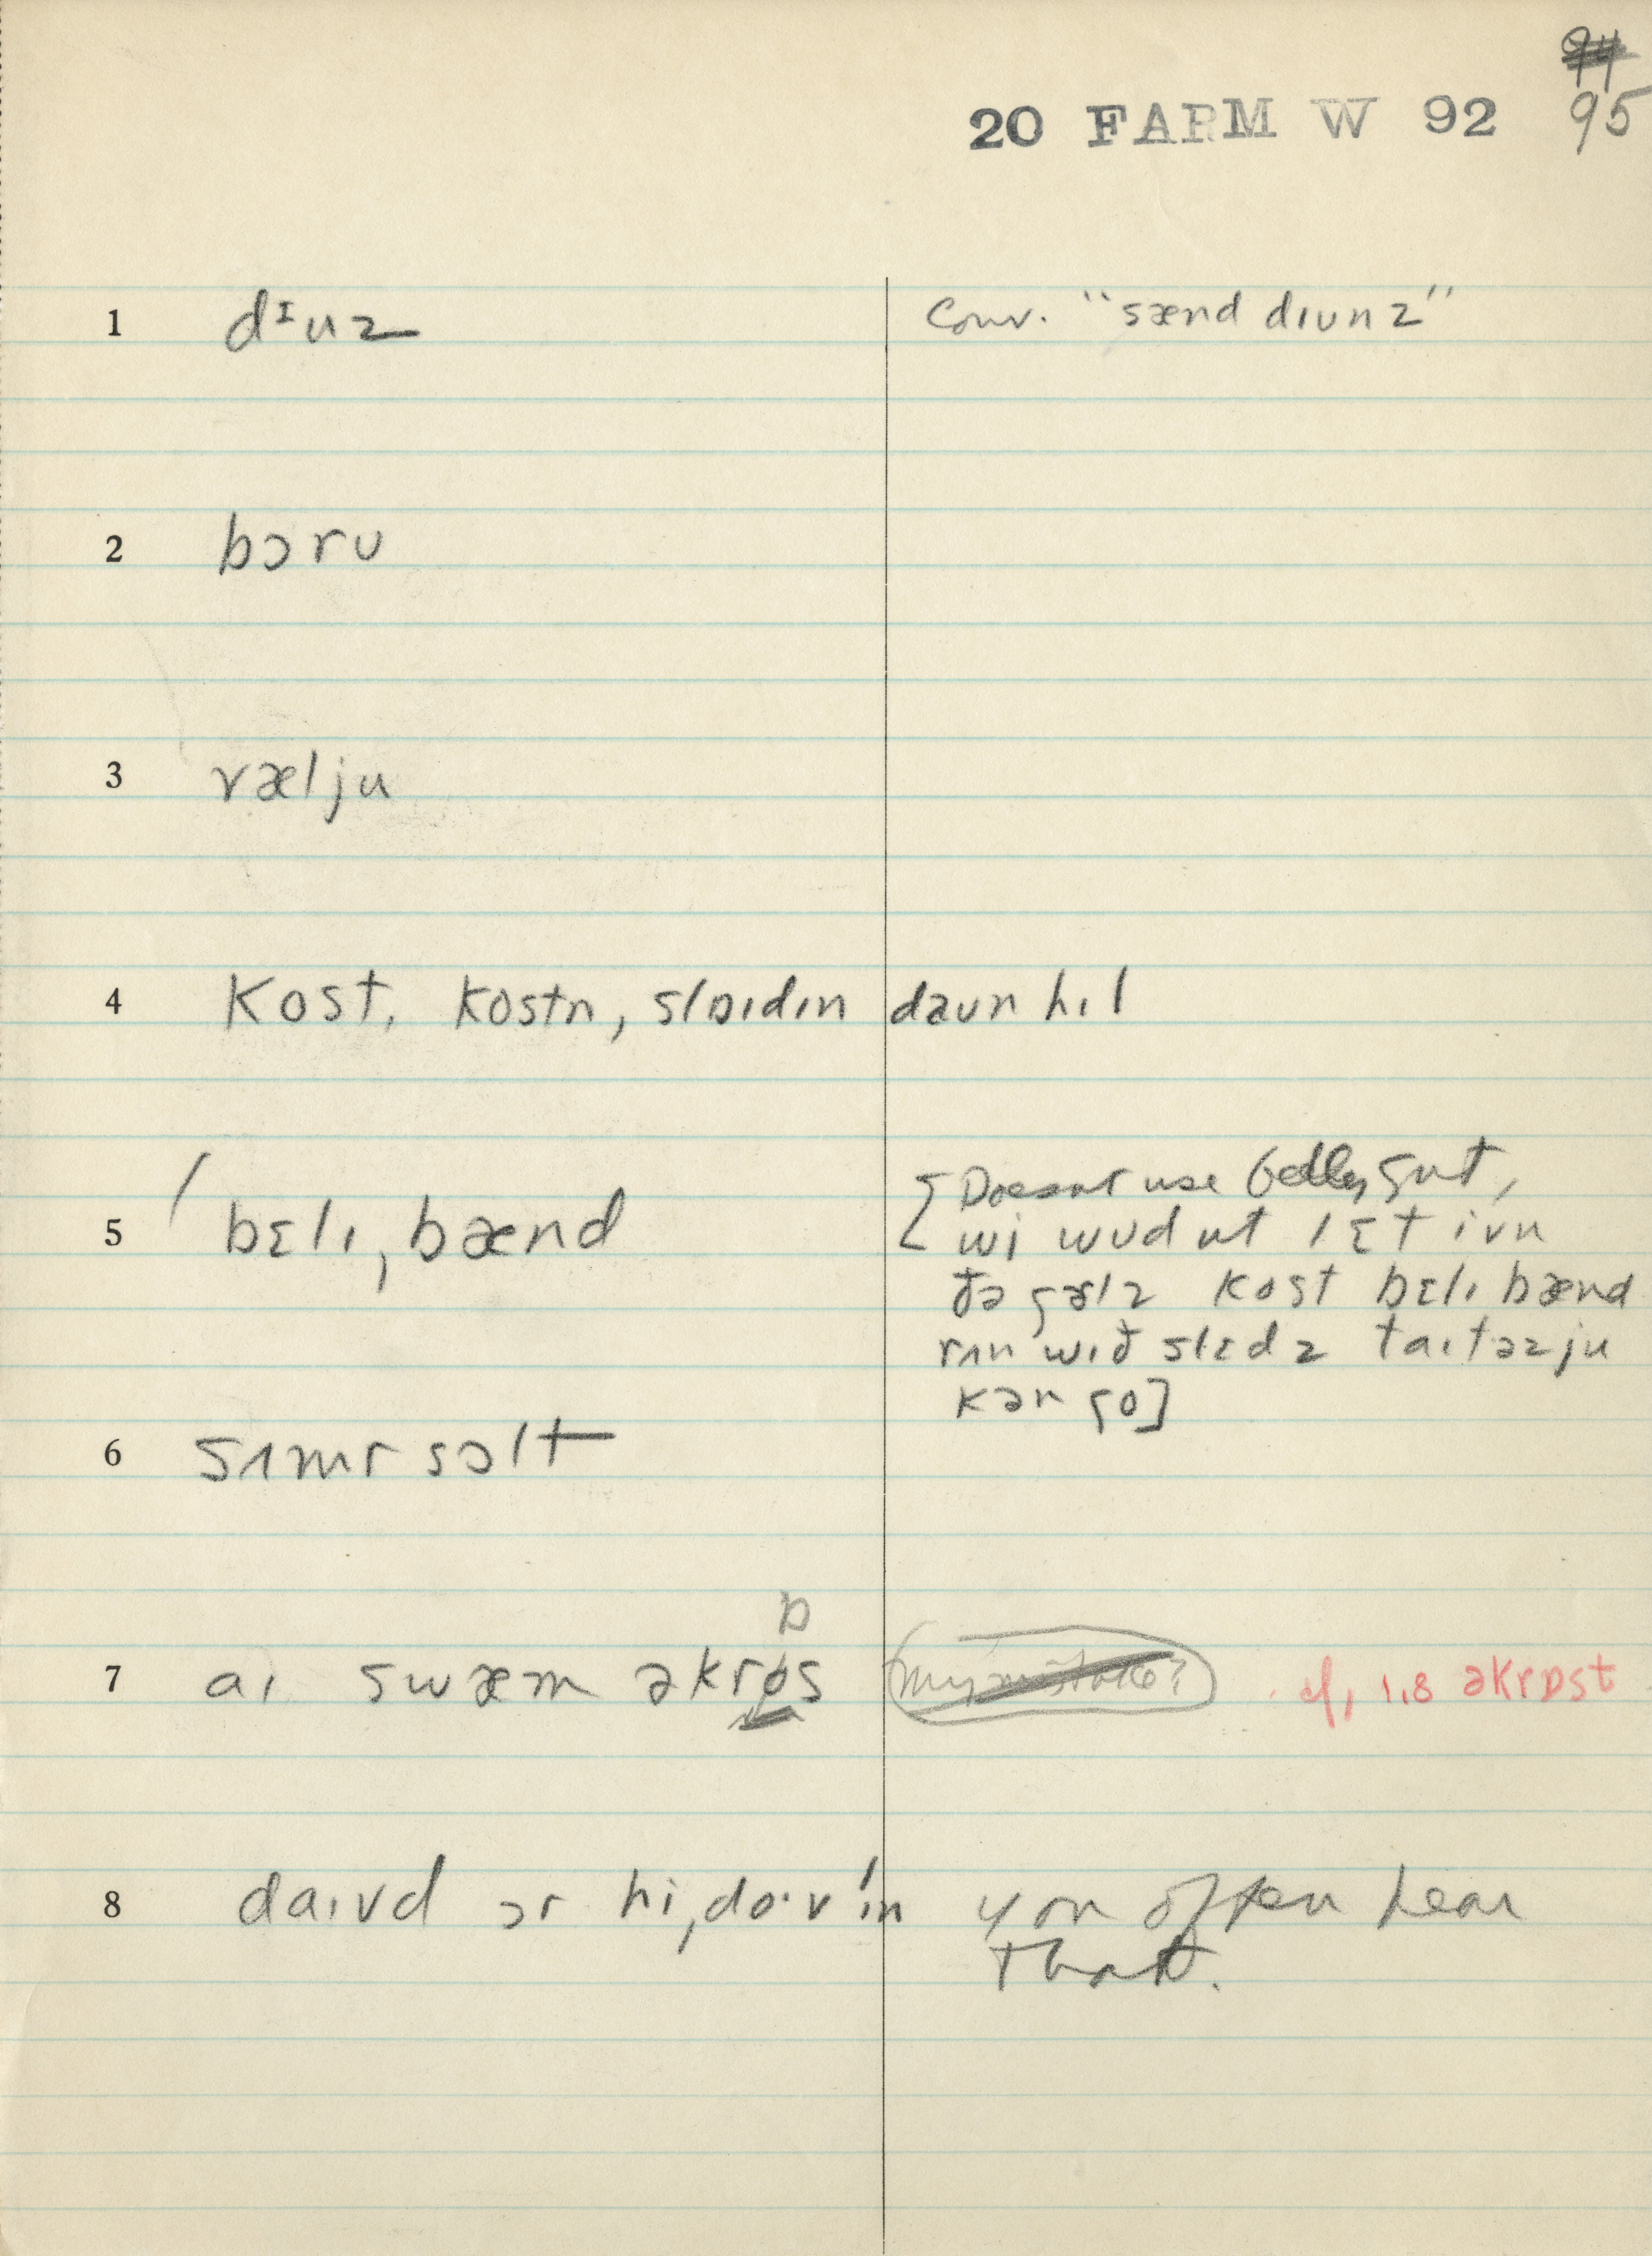 95
20 FARM W 92
1 dᶦuz Conv. "sænd dɪunz"
2 bɔru
3 væljʉ
4 kost, kostn, slɒɪdɪn daun hɪl
5 bɛlɪ, bænd [Doesnt use belly gut,
wi wudnt lɛt ivn
ðə gɚlz kost bɛlɪ bænd
rʌn wɪð slɛdz taɪtəzju
kən go]
6 sʌmrsɔlt
ɒ
7 aɪ swæm əkros my mistake? cf, 1.8 əkrɒst
8 daɪvd ɔr hi, do·v ɪn you often hear
that.